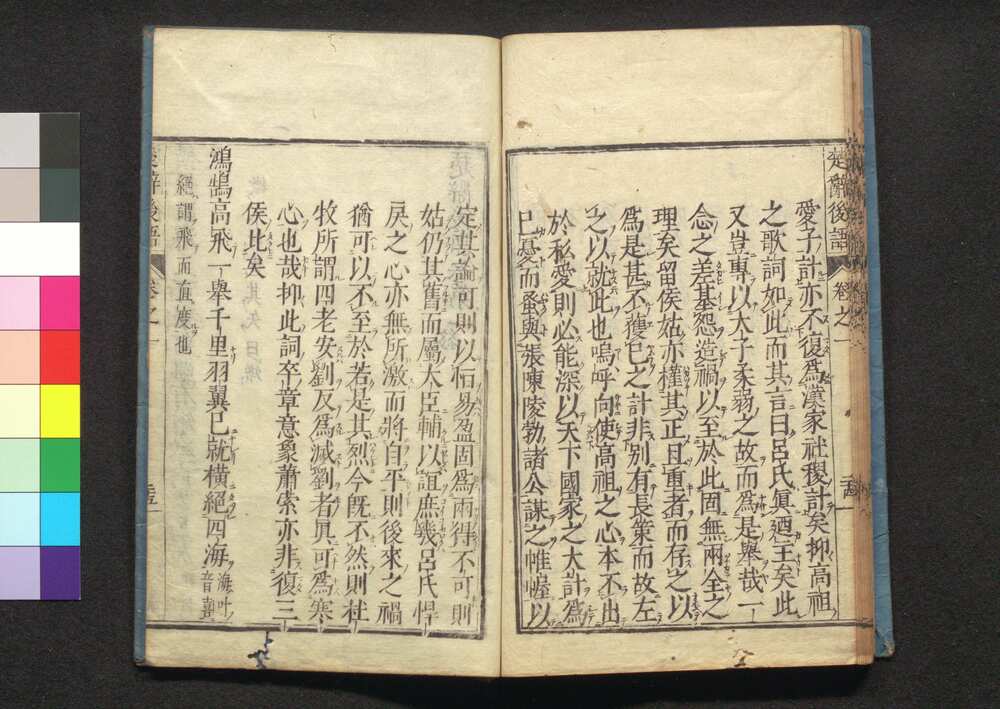 楚辭後語 卷之一 二十四
愛子計亦不復爲漢家社稷計矣抑高祖
之歌詞如此而其言曰呂氏眞廼主矣此
又豈專以太子柔弱之故而爲是擧哉一
念之差基怨造禍以至於此固無兩全之
理矣留侯姑亦權其正且重者而存之以
爲是甚不獲已之計非別有長策而故左
之以就此也嗚呼向使高祖之心本不出
於私愛則必能深以天下國家之大計爲
己憂而蚤與張陳陵勃諸公謀之帷幄以
定其論可則以恒易盈固爲兩得不可則
姑仍其舊而屬大臣輔以誼庶幾呂氏悍
戾之心亦無所激而將自平則後來之禍
猶可以不至於若是其烈今旣不然則杜
牧所謂四老安劉反爲滅劉者眞可爲寒
心也哉抑此詞卒章意象蕭索亦非復三
侯比矣
鴻鵠高飛一擧千里羽翼已就橫絕四海海叶音喜
絕謂飛而直度也
楚辭後語 卷之一